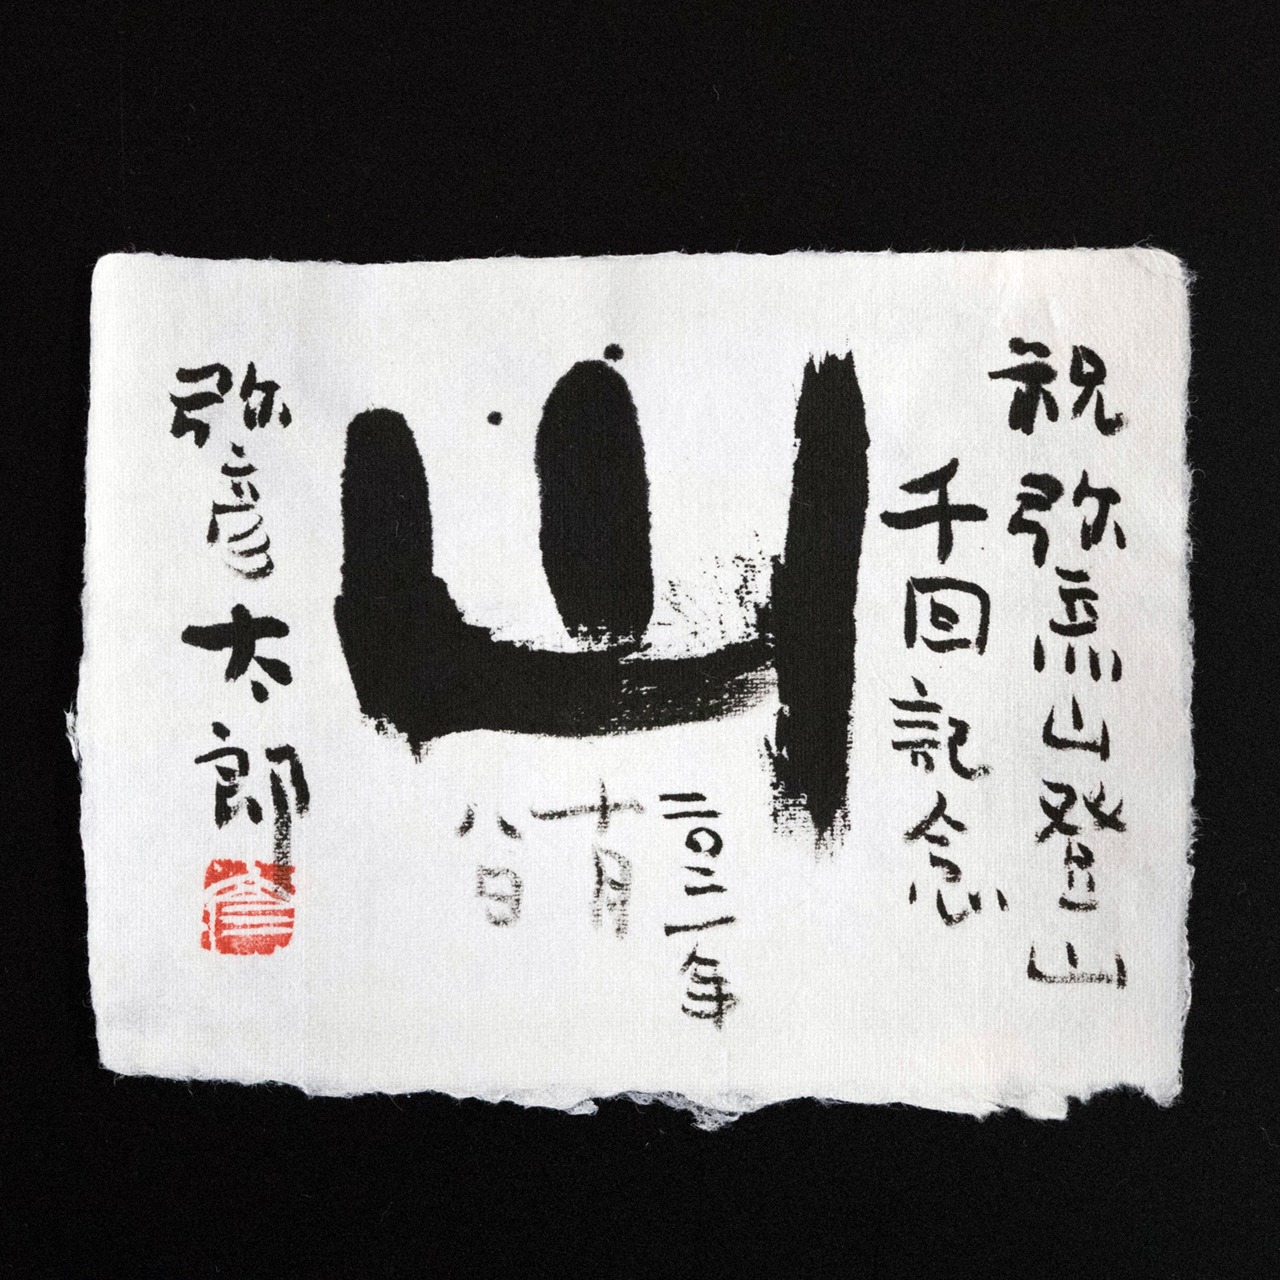 祝 弥彦山登山
千回記念
山
二〇二一年
十月
八日
弥彦太郎